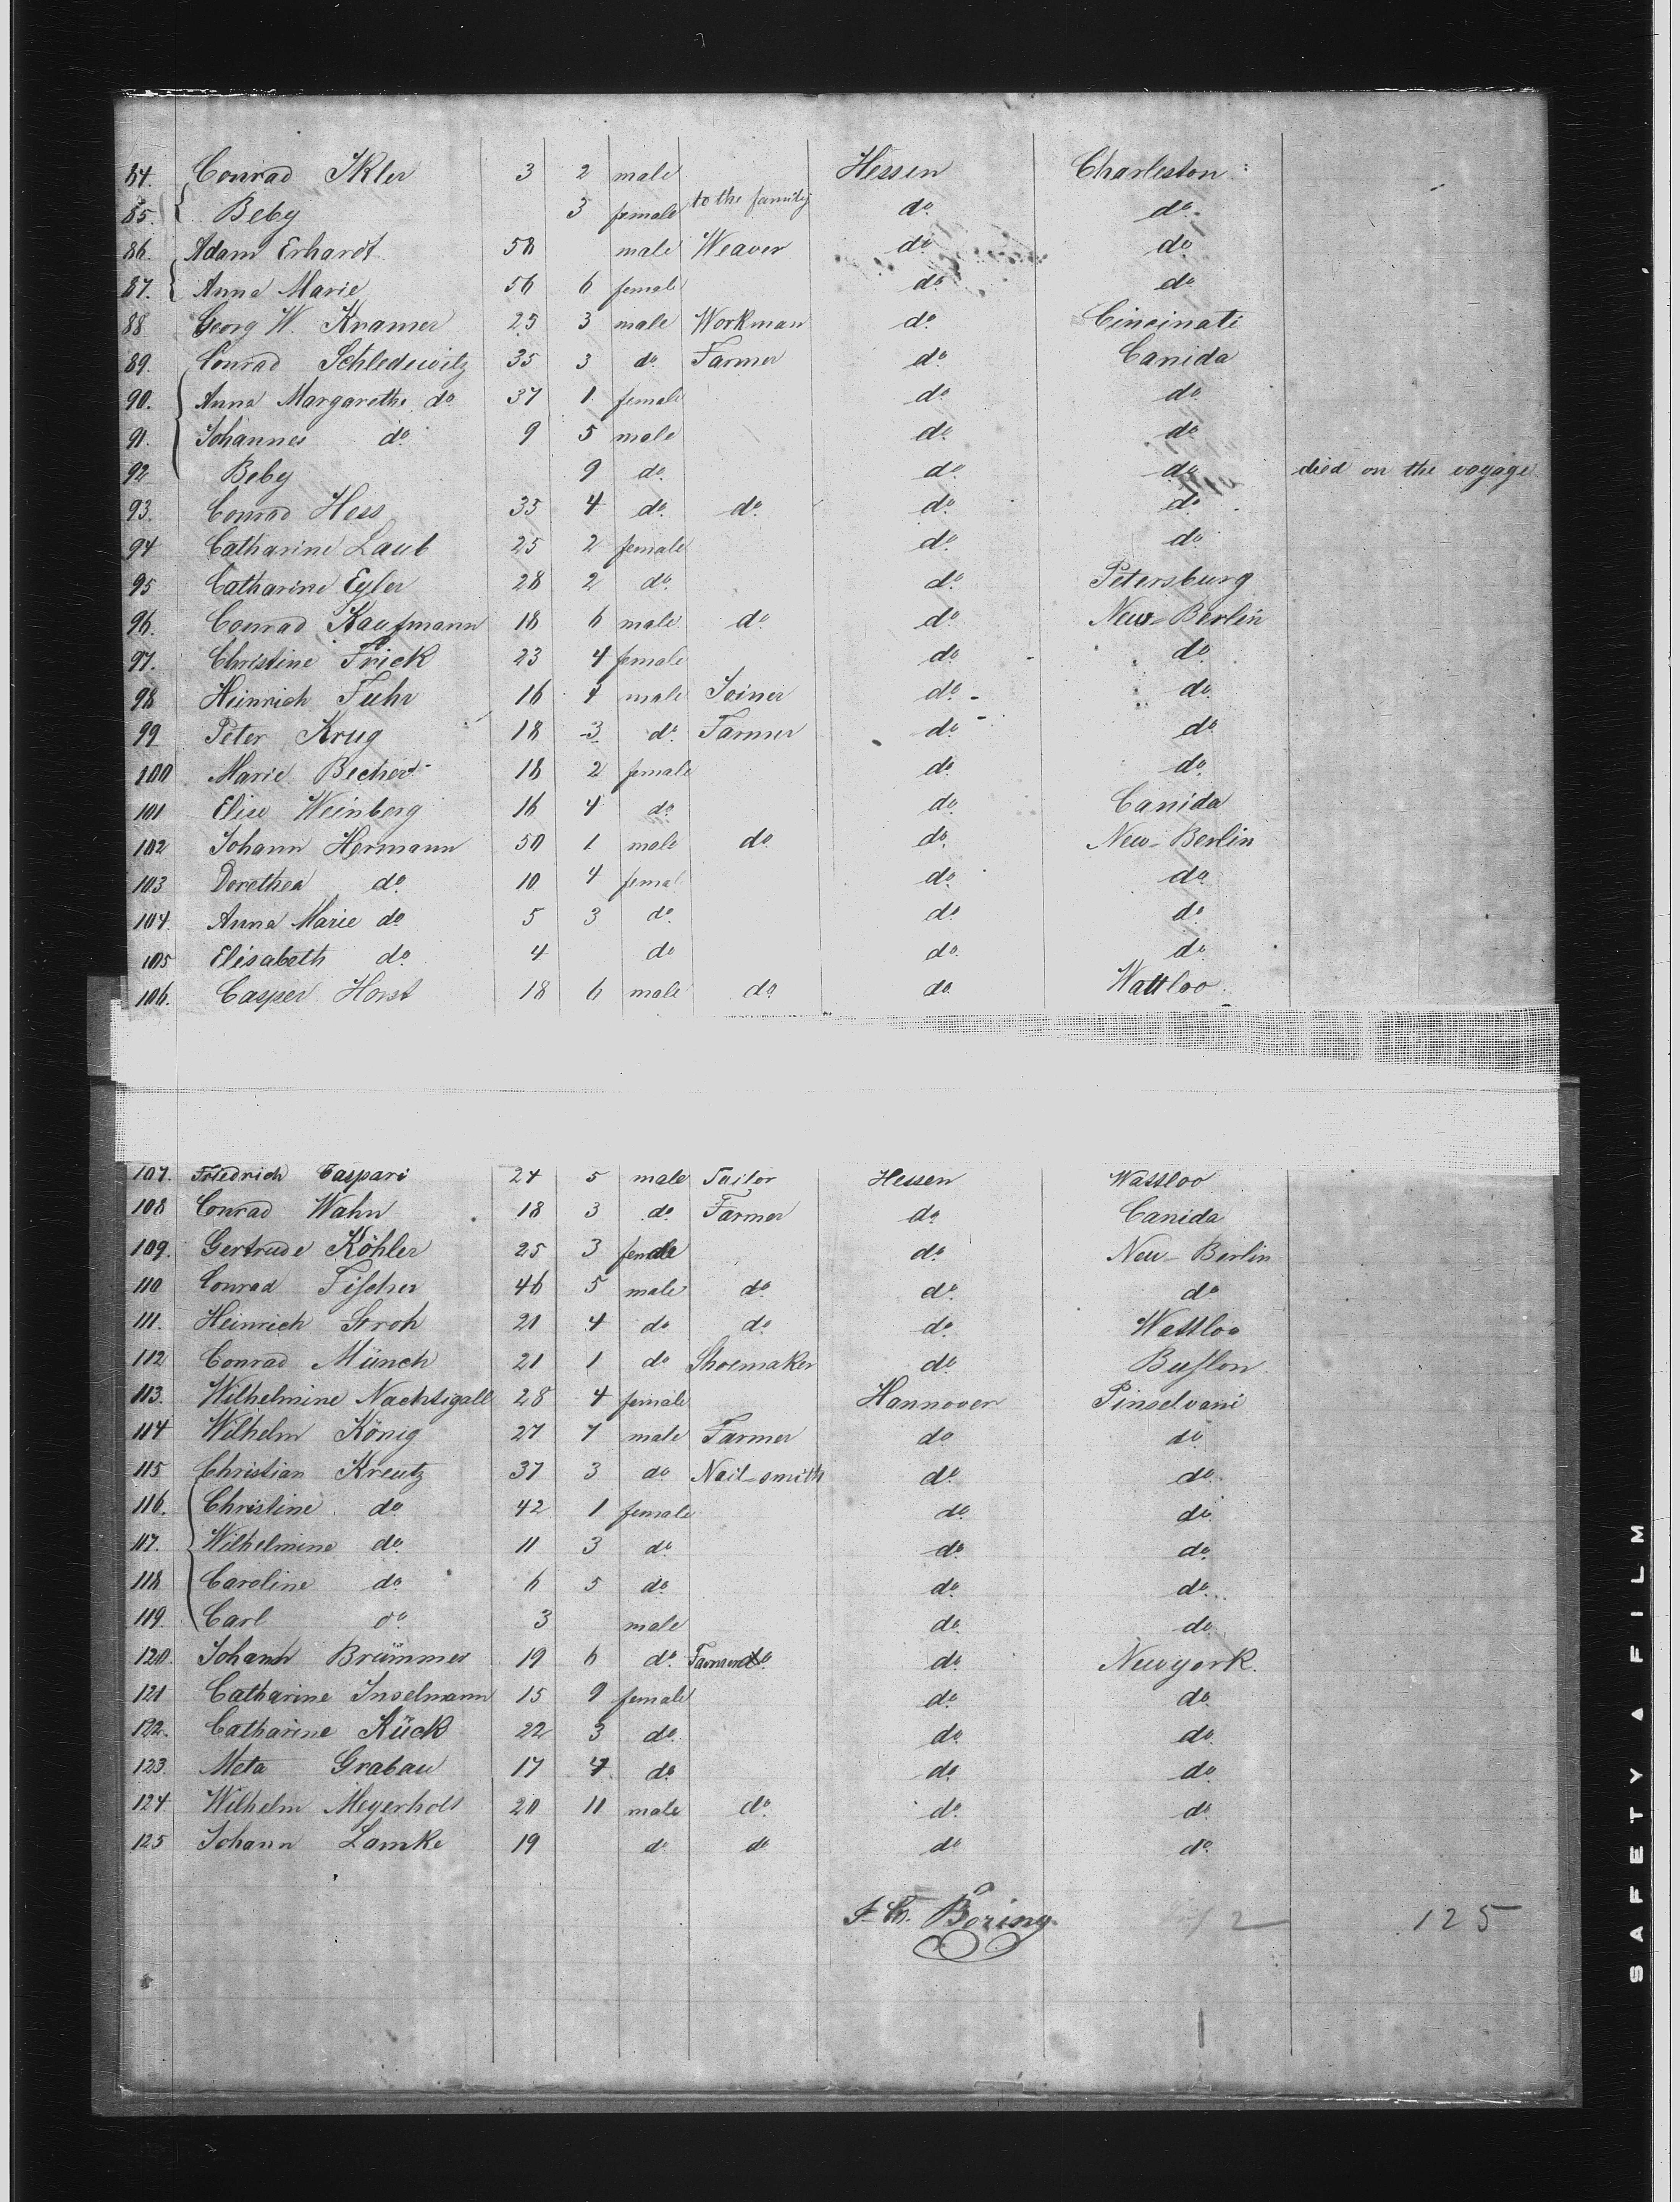 84. Conrad Ikler 3 2 male Hessen Charleston
85. Beby 3 female to the family do do
86. Adam Erhardt 58 male Weaver do do
87. Anna Marie 56 6 female do do
88 Georg W. Kramer 25 3 male Workman do Cincinati
89. Conrad Schledewitz 35 3 do Farmer do Canida
90. Anna Margarethe do 37 1 female do do
91. Johannes do 9 5 male do do
92 Beby 9 do do do died on the voyage
93. Conrad Hess 35 4 do do do do
94 Catharine Laub 25 2 female do do
95 Catharine Eyler 28 2 do do Petersburg
96. Conrad Kaufmann 18 6 male do do New-Berlin
97. Christine Frick 23 4 female do do
98 Heinrich Fuhr 16 4 male Joiner do do
99 Peter Krug 18 3 do Farmer do do
100 Marie Becher 18 2 female do do
101 Elise Weinberg 16 4 do do Canida
102 Johann Hermann 50 1 male do do New-Berlin
103 Dorethea do 10 4 femal do do
104. Anna Marie do 5 3 do do do
105 Elisabeth do 4 do do do
106. Casper Horst 18 6 male do do Wattloo
107. Friedrich Caspari 24 5 male Tailor Hessen Wattloo
108 Conrad Wahn 18 3 do Farmer do Canida
109. Gertrude Köhler 25 3 female do New-Berlin
110 Conrad Fischer 46 5 male do do do
111. Heinrich Stroh 21 4 do do do Wattloo
112 Conrad Münch 21 1 do Shoemaker do Buflon
113. Wilhelmine Nachtigall 28 4 female Hannover Pinselvani
114 Wilhelm König 27 7 male Farmer do do
115 Christian Kreutz 37 3 do Nail-smith do do
116. Christine do 42 1 female do do
117. Wilhelmine do 11 3 do do do
118 Caroline do 6 5 do do do
119. Carl do 3 male do do
120. Johann Brümmer 19 6 do Farmer do Newyork.
121 Catharine Inselmann 15 9 female do do
122. Catharine Kück 22 3 do do do
123. Meta Grabau 17 4 do do do
124. Wilhelm Meyerholt 20 11 male do do do
125 Johann Lamke 19 do do do do
Boring 2 125
SAFETY FILM